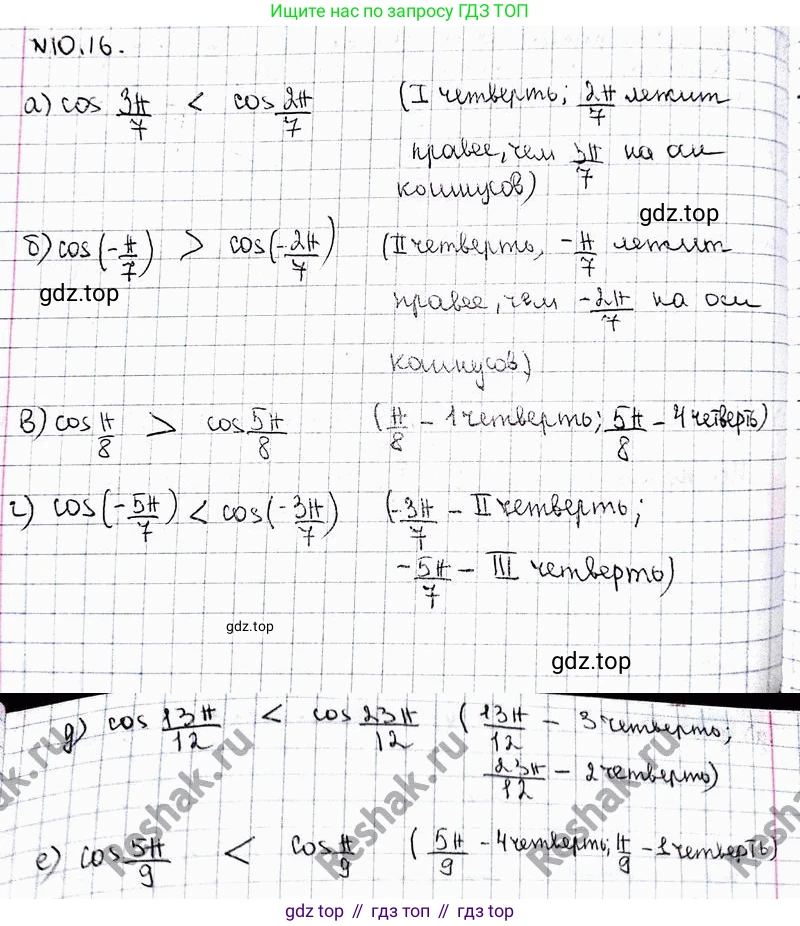 Ищите нас по запросу ГДЗ ТОП
N10.16.
а) cos 3π/7 < cos 2π/7 (I четверть; 2π/7 лежит
правее, чем 3π/7 на оси
косинусов)
gdz.top
б) cos(-π/7) > cos(-2π/7) (II четверть, -π/7 лежит
gdz.top
правее, чем -2π/7 на оси
косинусов)
в) cos π/8 > cos 5π/8 (π/8 - 1 четверть; 5π/8 - 4 четверть)
г) cos(-5π/7) < cos(-3π/7) (-3π/7 - II четверть;
-5π/7 - III четверть)
gdz.top
gdz.top
д) cos 13π/12 < cos 23π/12 (13π/12 - 3 четверть;
23π/12 - 2 четверть)
е) cos 5π/9 < cos π/9 (5π/9 - 4 четверть; π/9 - 1 четверть)
Reshak.ru
Reshak.ru
Reshak.ru
Reshak.ru
gdz top // гдз топ // gdz top